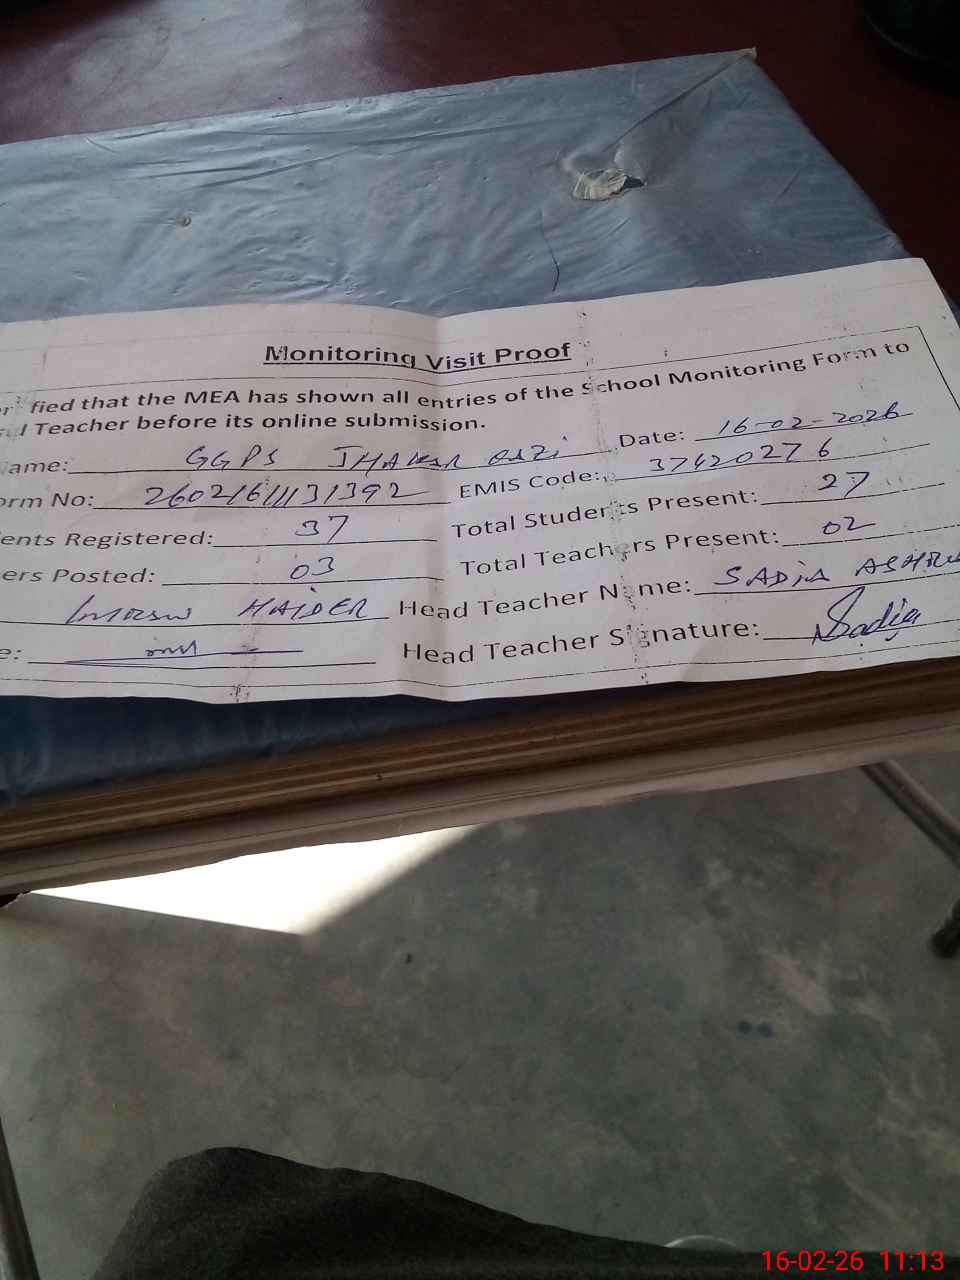 Monitoring Visit Proof
fied that the MEA has shown all entries of the School Monitoring Form to
Teacher before its online submission.
ame: GGPS Date: 16-02-2026
orm No: EMIS Code: 37420276
ents Registered: 37 Total Students Present: 27
ers Posted: 03 Total Teachers Present: 02
HAIDER Head Teacher Name: SADIA ASHRA
e: Head Teacher Signature: Sadia
16-02-26 11:13